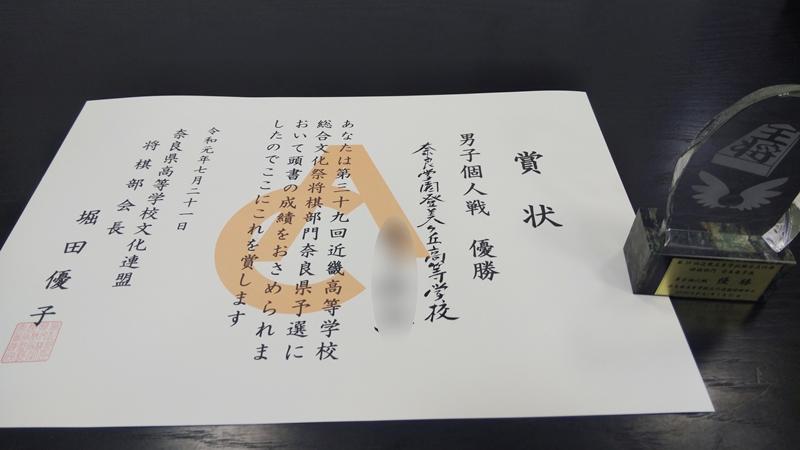 賞状
男子個人戦 優勝
奈良学園登美ヶ丘高等学校
あなたは第三十九回近畿高等学校
総合文化祭将棋部門奈良県予選に
おいて頭書の成績をおさめられま
したのでここにこれを賞します
令和元年七月二十一日
奈良県高等学校文化連盟
将棋部会長
堀田優子
王将
優勝